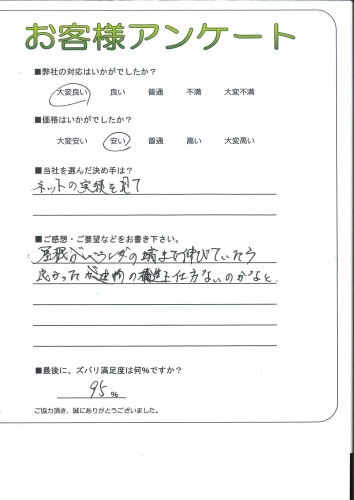 お客様アンケート
■弊社の対応はいかがでしたか？
大変良い 良い 普通 不満 大変不満
■価格はいかがでしたか？
大変安い 安い 普通 高い 大変高い
■当社を選んだ決め手は？
ネットの実績を見て
■ご感想・ご要望などをお書き下さい。
屋根がベランダの端まで伸びていたら
良かったが建物の構造上仕方ないのかなと
■最後に、ズバリ満足度は何％ですか？
95％
ご協力頂き、誠にありがとうございました。